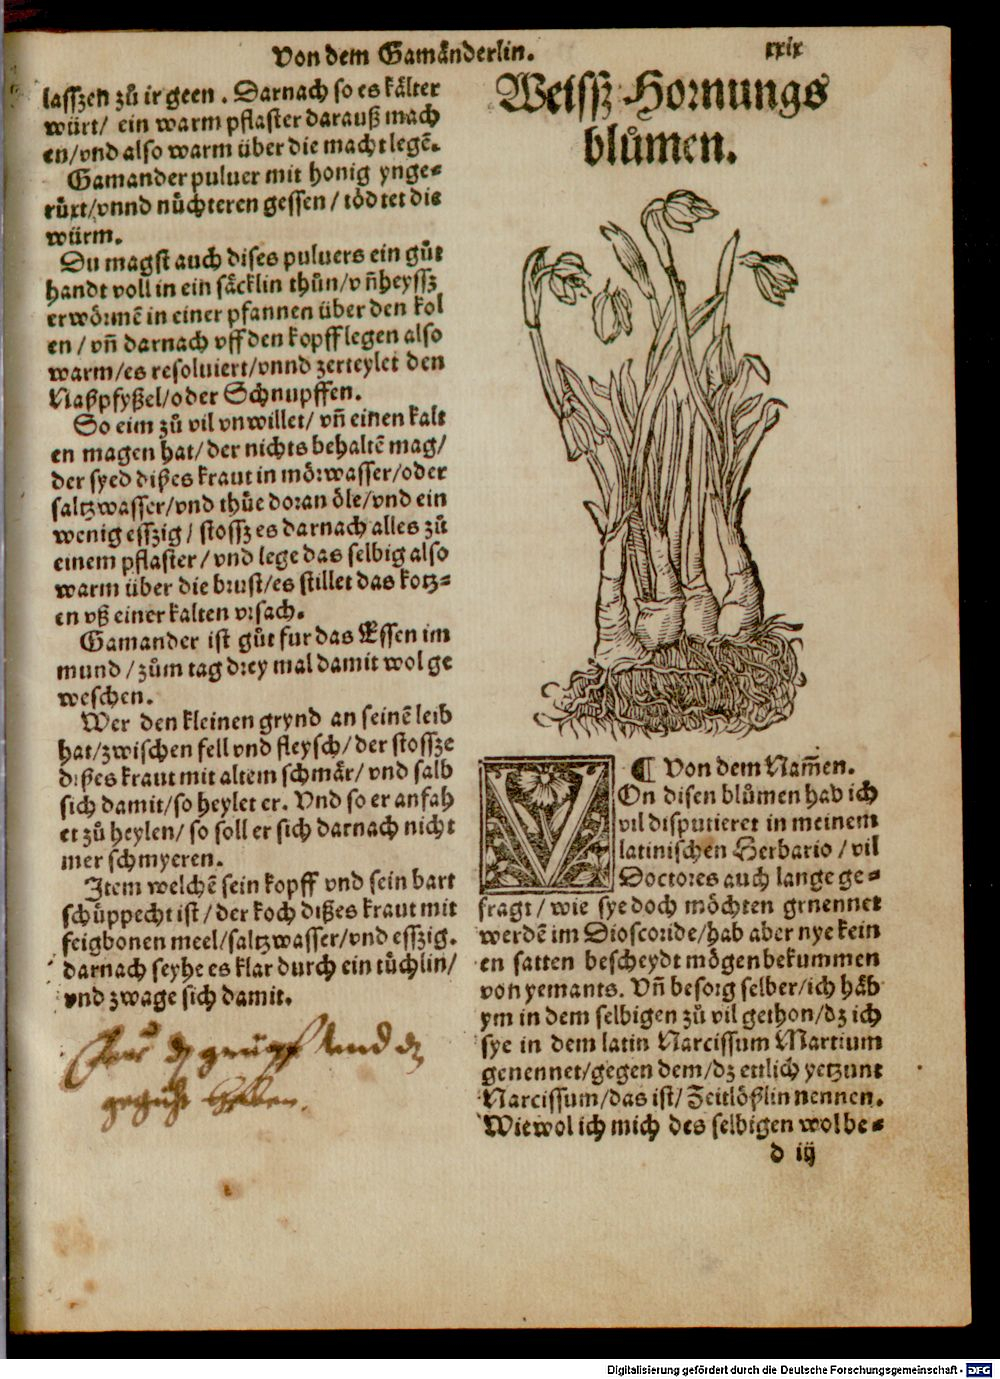 Von dem Gamånderlin.
xxix
lasszen zů ir geen. Darnach so es kålter
würt/ ein warm pflaster darauß mach
en/vnd also warm über die macht legē.
Gamander puluer mit honig ynge⸗
rüxt/vnnd nůchteren gessen/ tödtet die
würm.
Du magst auch dises puluers ein gůt
handt voll in ein såcklin thůn/vñ heyssz
erwörmē in einer pfannen über den kol
en/ vñ darnach vff den kopff legen also
warm/es resoluiert/vnnd zerteylet den
Naßpfyßel/oder Schnupffen.
So eim zů vil vnwillet/ vñ einen kalt
en magen hat/ der nichts behaltē mag/
der syed dißes kraut in mörwasser/oder
saltzwasser/vnd thůe doran öle/vnd ein
wenig esszig/ stossz es darnach alles zů
einem pflaster/ vnd lege das selbig also
warm über die brust/es stillet das kotz⸗
en vß einer kalten vrsach.
Gamander ist gůt fur das Essen im
mund/ zům tag drey mal damit wol ge
weschen.
Wer den kleinen grynd an seinē leib
hat/zwischen fell vnd fleysch/ der stossze
dißes kraut mit altem schmår/ vnd salb
sich damit/so heylet er. Vnd so er anfah
et zů heylen/ so soll er sich darnach nicht
mer schmyeren.
Item welchē sein kopff vnd sein bart
schüppecht ist/ der koch dißes kraut mit
feigbonen meel/saltzwasser/vnd esszig.
darnach seyhe es klar durch ein tůchlin/
vnd zwage sich damit.
Weissz Hornungs
blůmen.
¶ Von dem Nam̃en.
VOn disen blůmen hab ich
vil disputieret in meinem
latinischen Herbario/ vil
Doctores auch lange ge⸗
fragt/ wie sye doch möchten genennet
werdē im Dioscoride/hab aber nye kein
en satten bescheydt mögen bekummen
von yemants. Vñ besorg selber/ich hab
ym in dem selbigen zů vil gethon/dz ich
sye in dem latin Narcissum Martium
genennet/gegen dem/dz ettlich yetzunt
Narcissum/das ist/ Zeitlößlin nennen.
Wiewol ich mich des selbigen wol be⸗
d iij
Digitalisierung gefördert durch die Deutsche Forschungsgemeinschaft - DFG